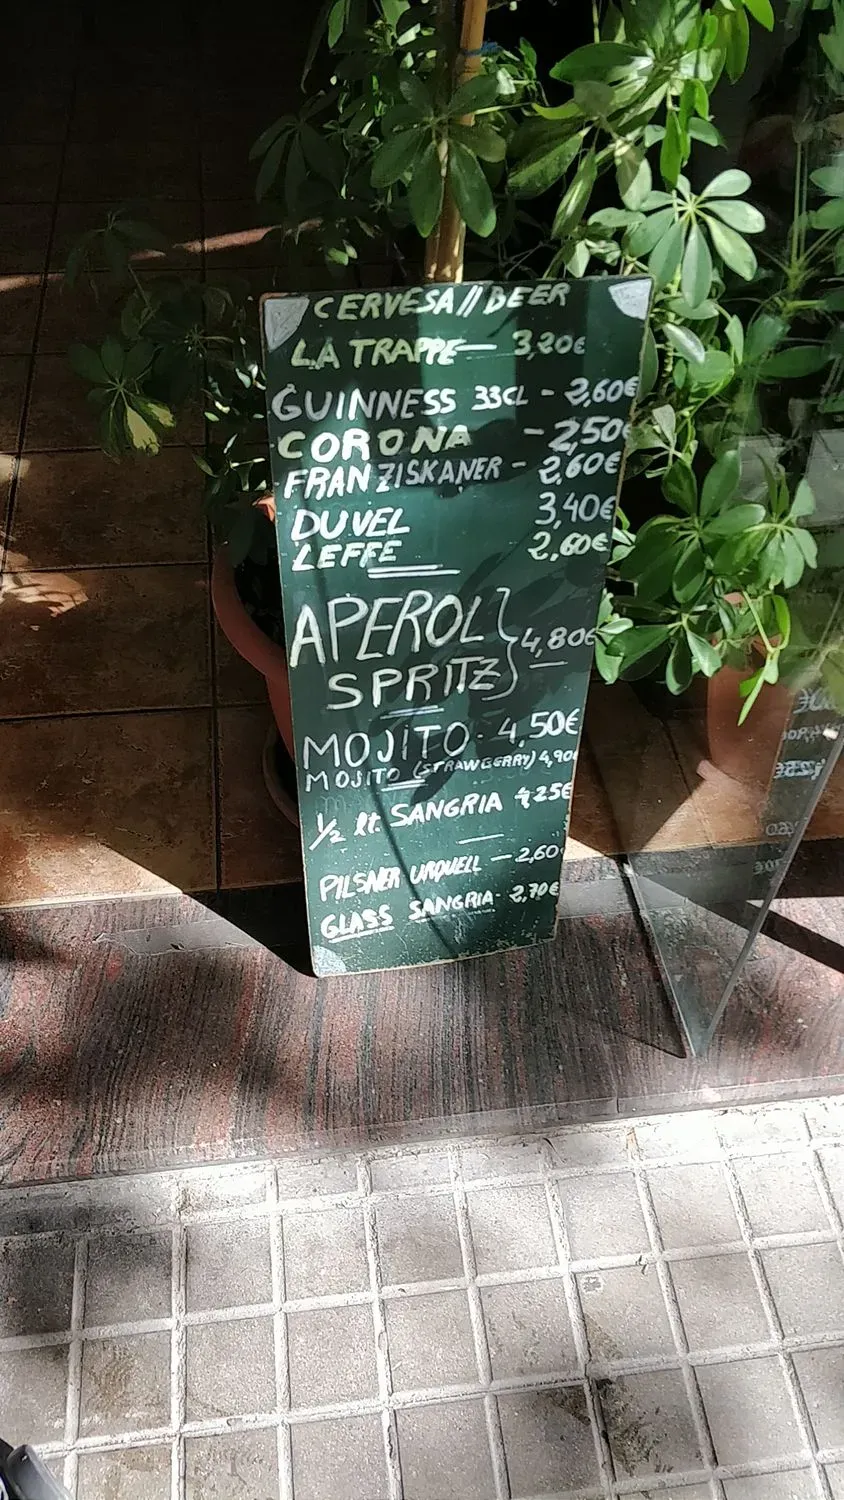 CERVESA//BEER
LA TRAPPE — 3,20€
GUINNESS 33CL - 2,60€
CORONA - 2,50€
FRANZISKANER - 2,60€
DUVEL 3,40€
LEFFE 2,60€
APEROL
SPRITZ } 4,80€
MOJITO - 4,50€
MOJITO (STRAWBERRY) 4,90€
1/2 lt. SANGRIA 4,25€
PILSNER URQUELL — 2,60
GLASS SANGRIA - 2,70€